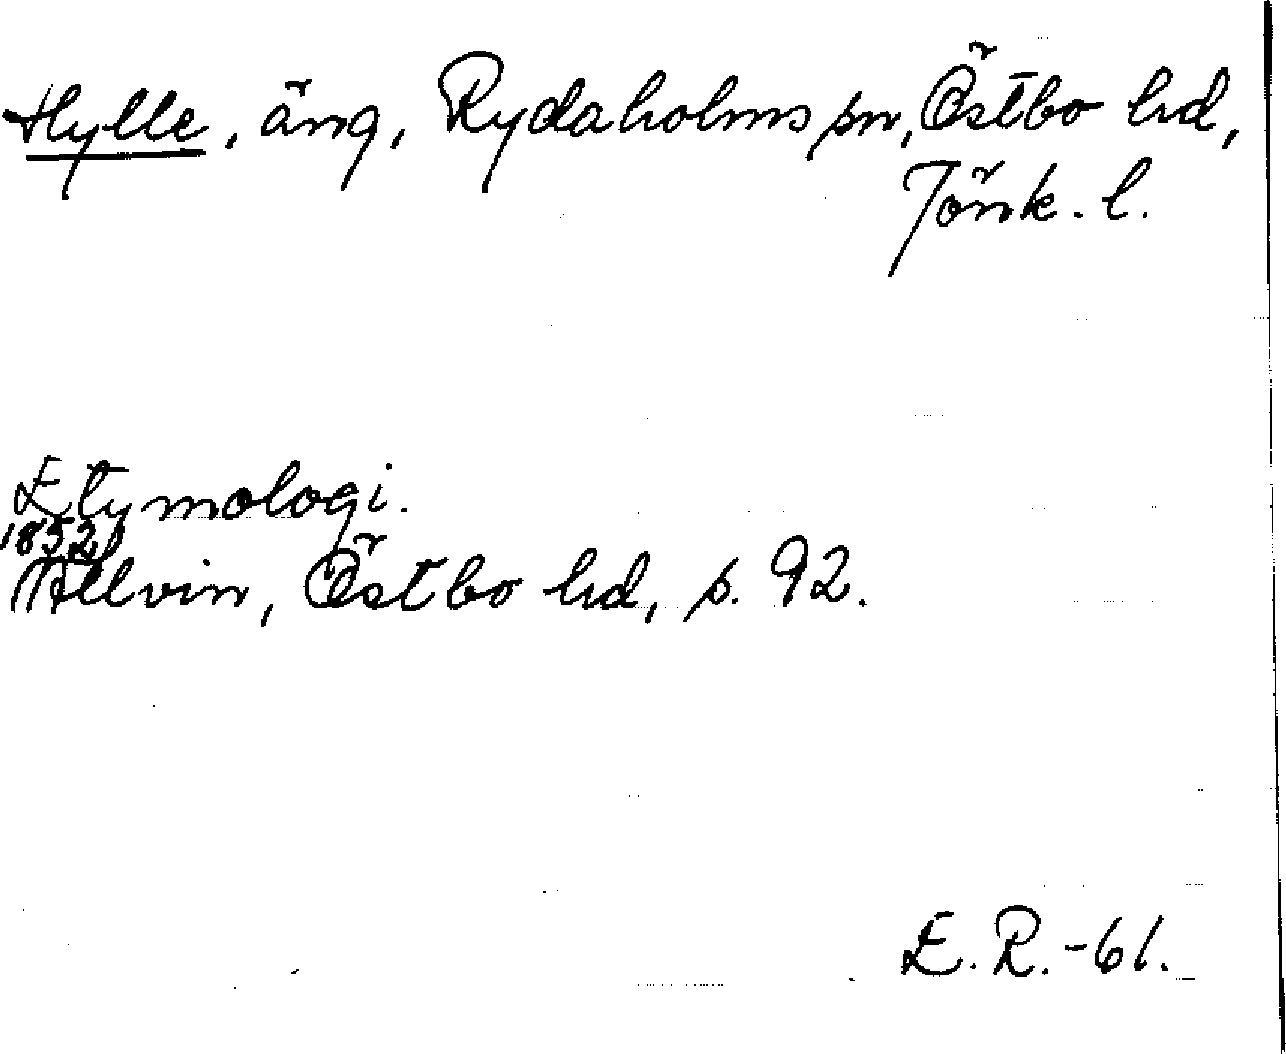 Hylle, äng, Rydaholms sn, Östbo hd,
Jönk. l.
Etymologi.
1852
Allvin, Östbo hd, s. 92.
E. R. -61.